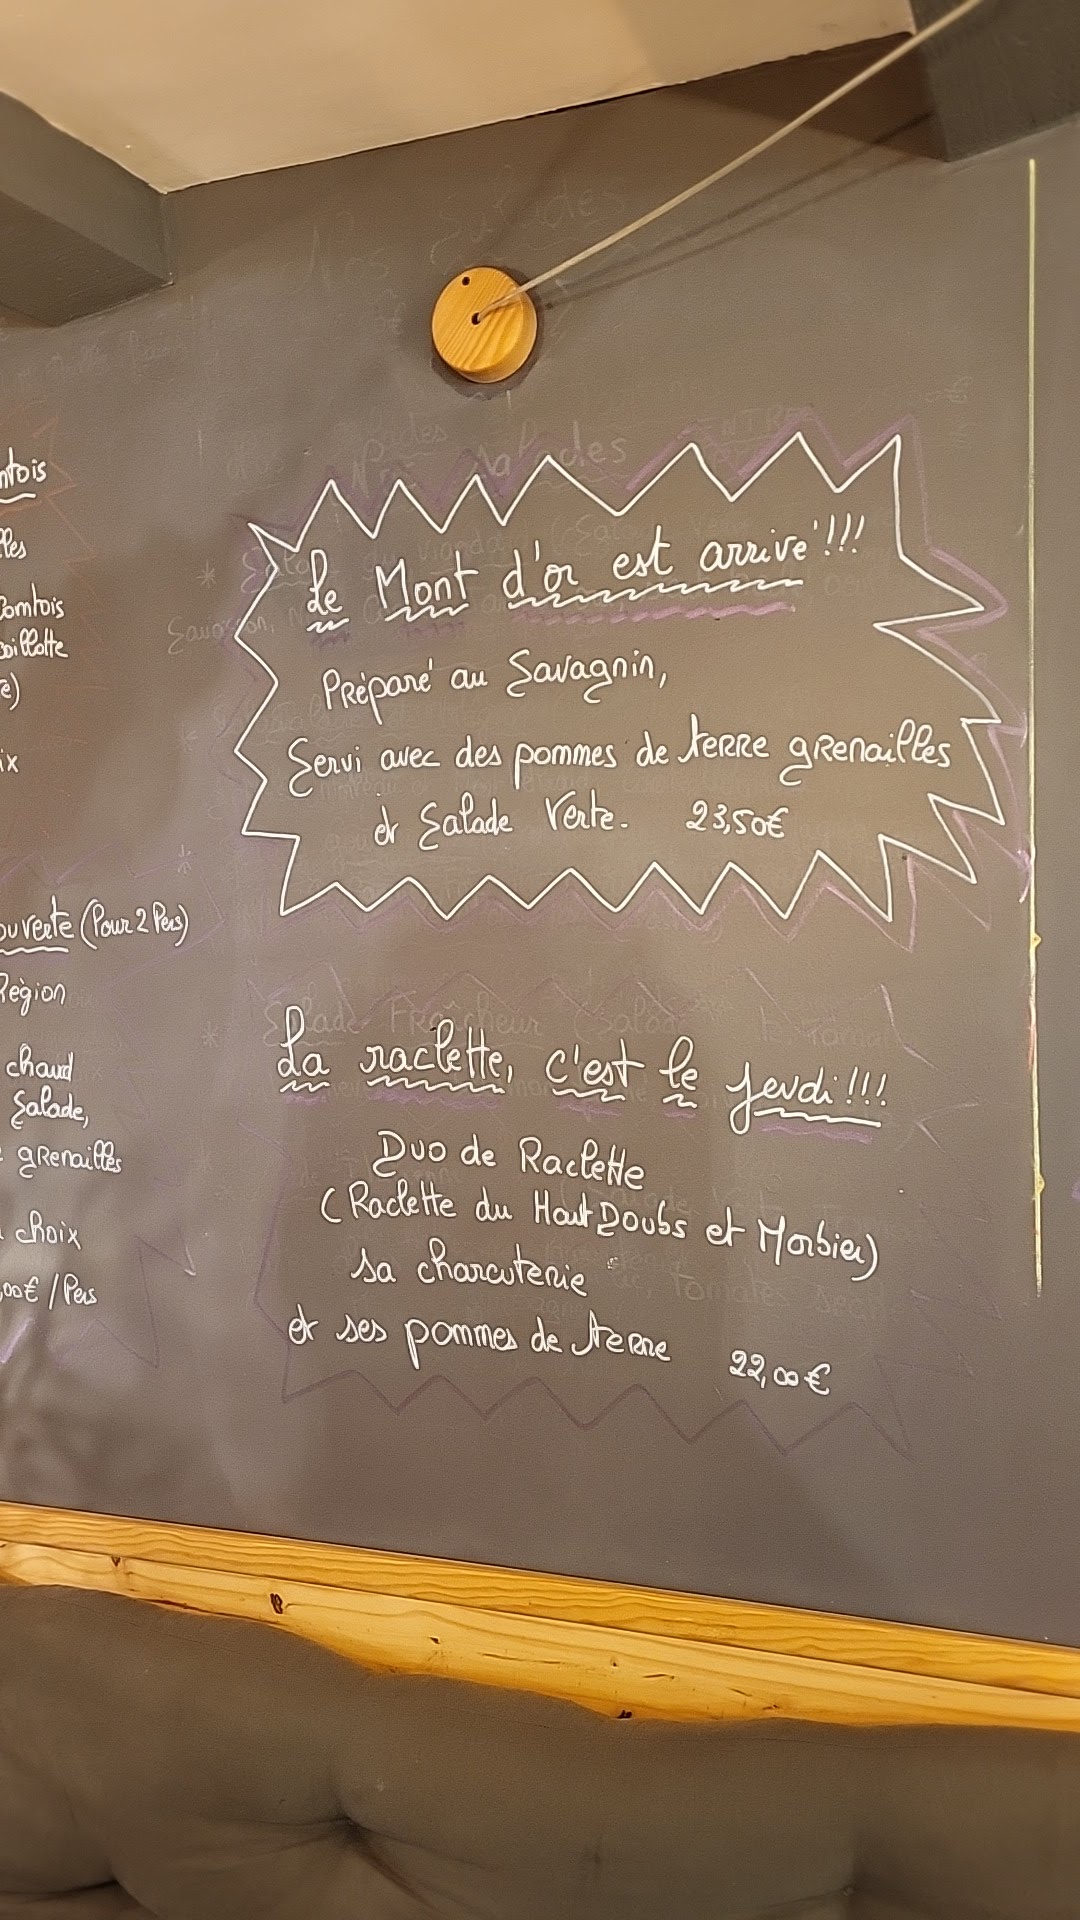 Le Mont d'or est arrivé !!!
Préparé au Savagnin,
Servi avec des pommes de terre grenailles
et Salade Verte. 23,50€
La raclette, c'est le jeudi !!!
Duo de Raclette
(Raclette du Haut Doubs et Morbier)
sa charcuterie
et ses pommes de terre
22,00€
Comtois
(Pour 2 Pers)
Région
chaud
Salade,
grenailles
choix
,00€ / Pers